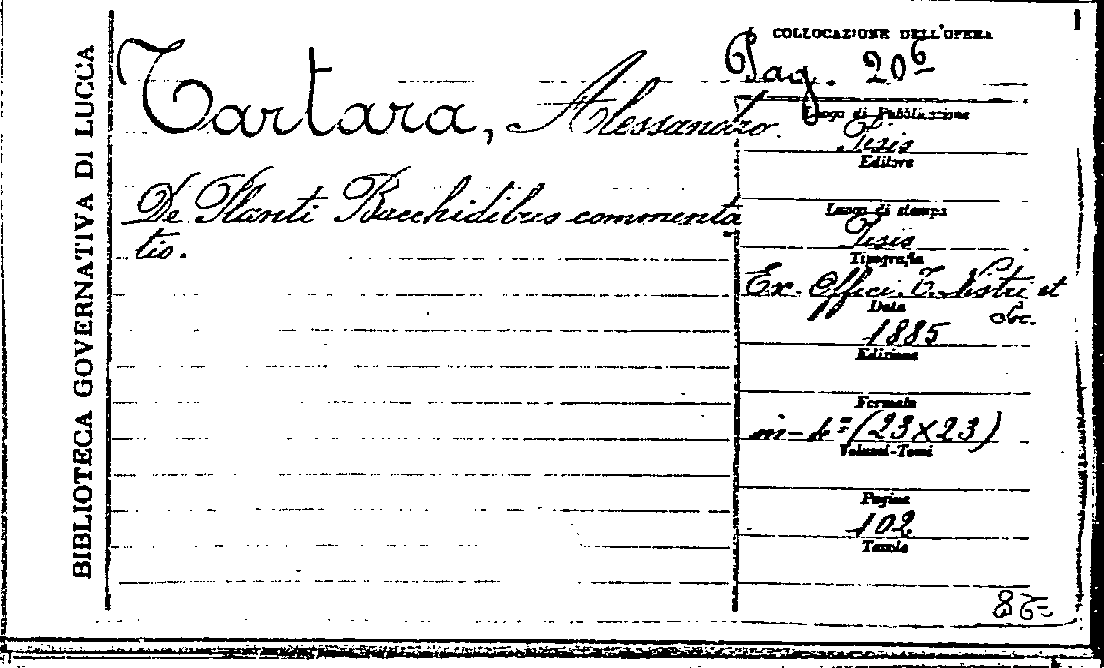 BIBLIOTECA GOVERNATIVA DI LUCCA
Tartara, Alessandro.
De Planti Bacchidibus commenta
tio.
COLLOCAZIONE DELL'OPERA
Pag. 206
Luogo di Pubblicazione
Pisis
Editore
Luogo di stampa
Pisis
Tipografia
Ex. Offici. T. Nistri et
Soc.
Data
1885
Edizione
Formato
in-4º (23×23)
Volumi-Tomi
Pagine
102
Tavole